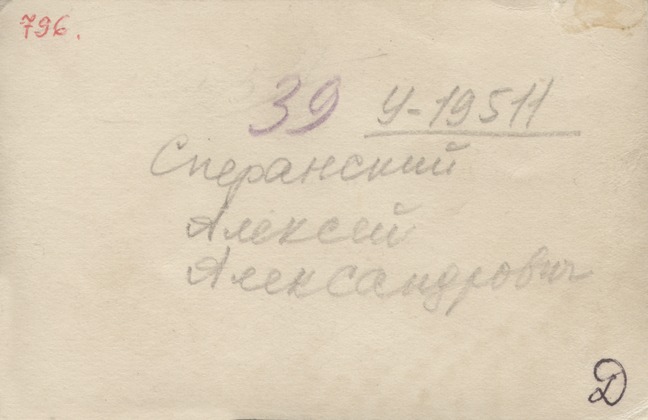 796.
39 У-19511
Сперанский
Алексей
Александрович
Д